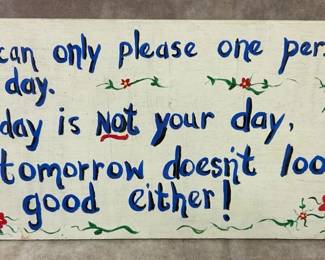 can only please one per
day.
day is Not your day,
tomorrow doesn't loo
good either!